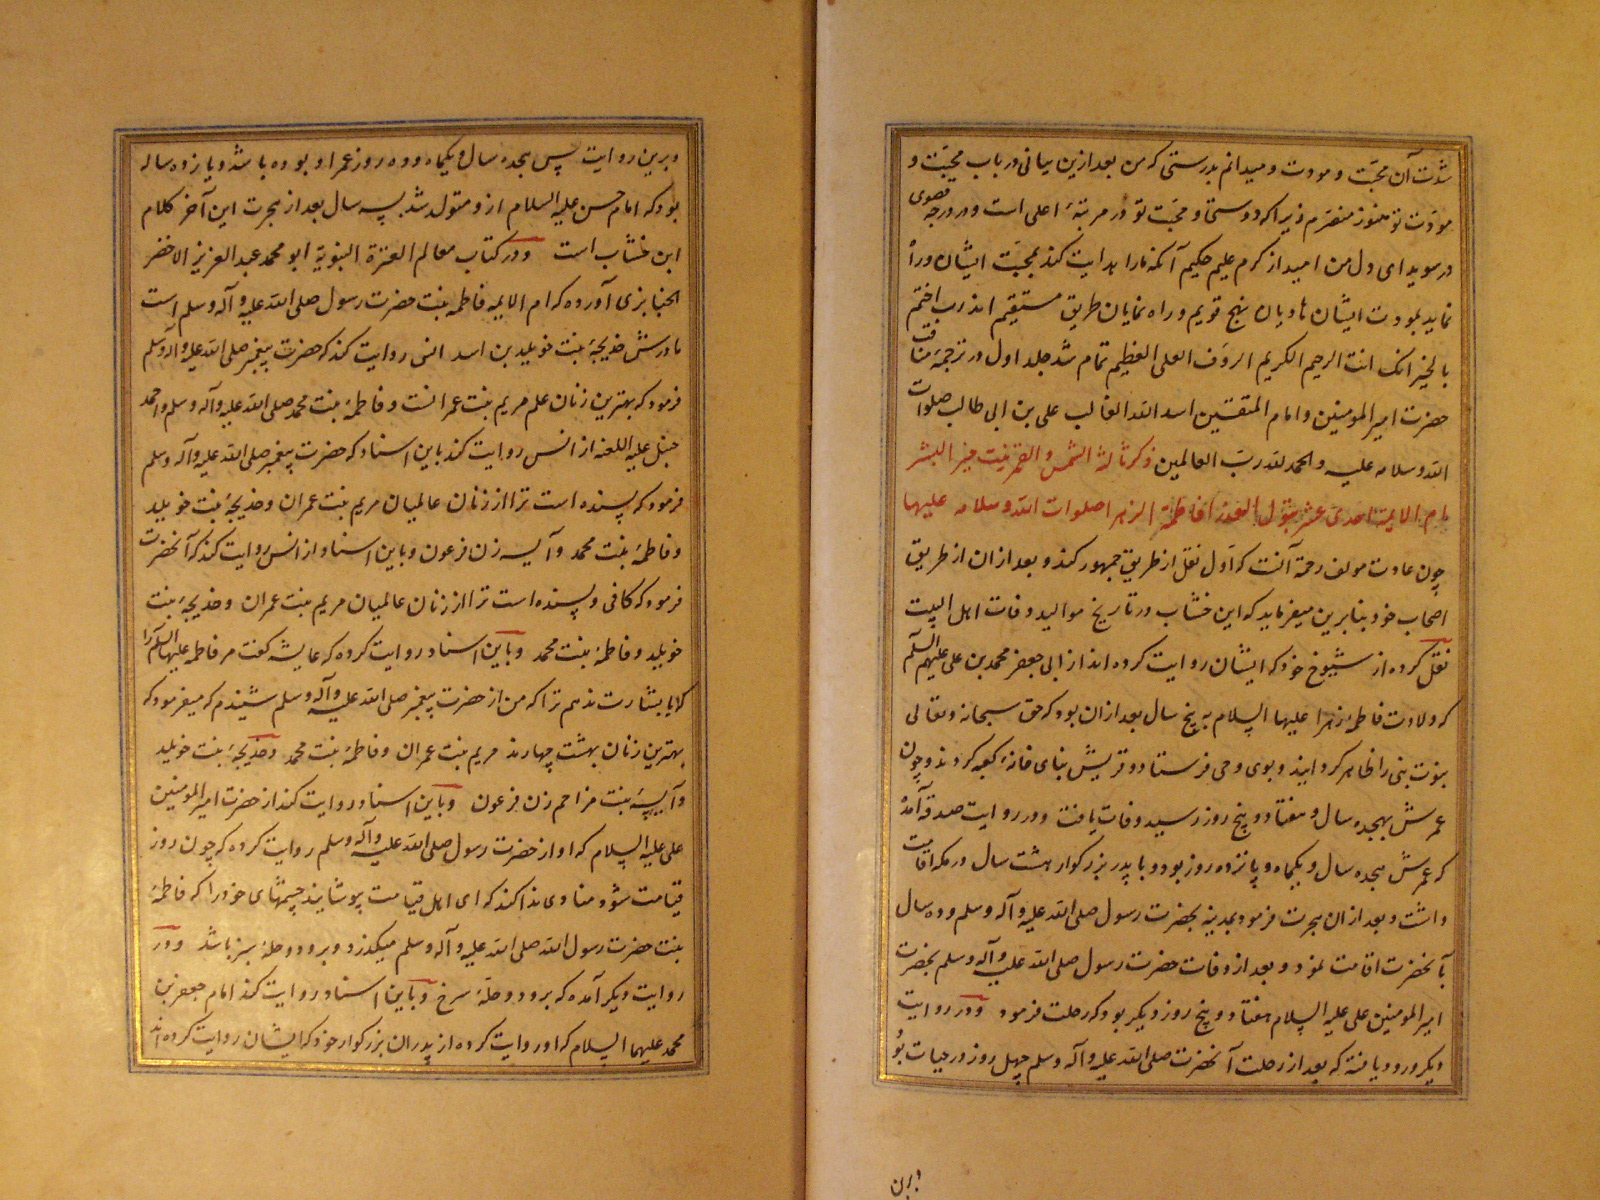 شدت آن محبت و مودت و میدانم بدرستی که من بعد ازین بیانی در باب محبّت و
مودّت تو هنوز منصرم زیرا که دوستی و محبّت تو در مرتبهٔ اعلی است و در درجه قصوی
در سویدای دل من امید از کرم علیم حکیم آنکه مارا هدایت کند بمحبّت ایشان و راه
نماید بمودت ایشان هادیان نهج قویم و راه نمایان طریق مستقیم اند رب اختم
بالخیر انک انت الرحیم الکریم الروف العلی العظیم تمام شد جلد اول در ترجمهٔ مناقب
حضرت امیر المومنین و امام المتقین اسد الله الغالب علی بن ابی طالب صلوات
الله و سلامه علیه و الحمد لله رب العالمین ذکر ثالثة الشمس و القمر بنت خیر البشر
ام الایمة احدی عشر بتول العذرا فاطمة الزهرا صلوات الله و سلامه علیها
چون عادت مولف رحمة آنست که اول نقل از طریق جمهور کند و بعد ازان از طریق
اصحاب خود بنا برین میفرماید که ابن خشّاب در تاریخ موالید و وفات اهل البیت
نقل کرده از شیوخ خود که ایشان روایت کرده اند از ابی جعفر محمد بن علی علیهم السّلم
که ولادت فاطمهٔ زهرا علیها السلام به پنج سال بعد ازان بود که حق سبحانه و تعالی
نبوّت نبی را ظاهر کردانید و بوی وحی فرستاد و قریش بنای خانهٔ کعبه کردند و چون
عمرش بهجده سال و هفتاد و پنج روز رسید وفات یافت و در روایت صدقه آمده
که عمرش هجده سال و یکماه و پانزده روز بود و با پدر بزرکوار هشت سال در مکه اقامت
داشت و بعد ازان هجرت فرمود بمدینه بحضرت رسول صلی الله علیه و آله و سلم و ده سال
بآنحضرت اقامت نمود و بعد از وفات حضرت رسول صلی الله علیه و آله و سلم بحضرت
امیر المومنین علی علیه السلام هفتاد و پنج روز دیکر بود که رحلت فرمود و در روایت
دیکر ورود یافته که بعد از رحلت آنحضرت صلی الله علیه و آله و سلم چهل روز در حیات بود
و برین
و برین روایت پس هجده سال و یکماه و ده روز عمر او بوده باشد و یازده ساله
بود که امام حسن علیه السلام ازو متولد شد بسه سال بعد از هجرت این آخر کلام
ابن خشاب است و در کتاب معالم العترة النبویة ابو محمد عبد العزیز الاخضر
الجنابزی آورده که ام الایمه فاطمه بنت حضرت رسول صلی الله علیه و آله و سلم است
مادرش خدیجهٔ بنت خویلد بن اسد انس روایت کند که حضرت پیغمبر صلی الله علیه و آله و سلم
فرمود که بهترین زنان علم مریم بنت عمرانست و فاطمهٔ بنت محمد صلی الله علیه و آله و سلم و احمد
حنبل علیه اللعنه از انس روایت کند باین اسناد که حضرت پیغمبر صلی الله علیه و آله و سلم
فرمود که بسنده است ترا از زنان عالمیان مریم بنت عمران و خدیجهٔ بنت خویلد
و فاطمهٔ بنت محمد و آسیه زن فرعون و باین اسناد از انس روایت کند که آنحضرت
فرمود که کافی و بسنده است ترا از زنان عالمیان مریم بنت عمران و خدیجهٔ بنت
خویلد و فاطمهٔ بنت محمد و باین اسناد روایت کرده که عایشه کفت مر فاطمه علیها السلم را
که ایا بشارت ندهم ترا که من از حضرت پیغمبر صلی الله علیه و آله و سلم شنیدم که میفرمود که
بهترین زنان بهشت چهارند مریم بنت عمران و فاطمهٔ بنت محمد و خدیجهٔ بنت خویلد
و آسیهٔ بنت مزاحم زن فرعون و باین اسناد روایت کند از حضرت امیر المومنین
علی علیه السلام که او از حضرت رسول صلی الله علیه و آله و سلم روایت کرده که چون روز
قیامت شود منادی ندا کند که ای اهل قیامت بپوشانید چشمهای خود را که فاطمهٔ
بنت حضرت رسول الله صلی الله علیه و آله و سلم میکذرد و برو دو حلهٔ سبز باشد و در
روایت دیکر آمده که برو دو حلهٔ سرخ و باین اسناد روایت کند امام جعفر بن
محمد علیهما السلام که او روایت کرده از پدران بزرکوار خود که ایشان روایت کرده اند